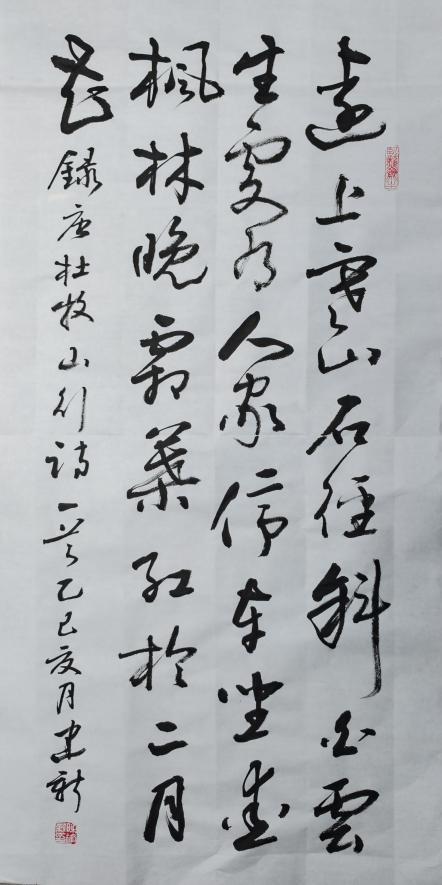 遠上寒山石徑斜白雲
生處有人家停車坐愛
楓林晚霜葉紅於二月
花 錄唐杜牧山行詩一首乙巳夏月建新